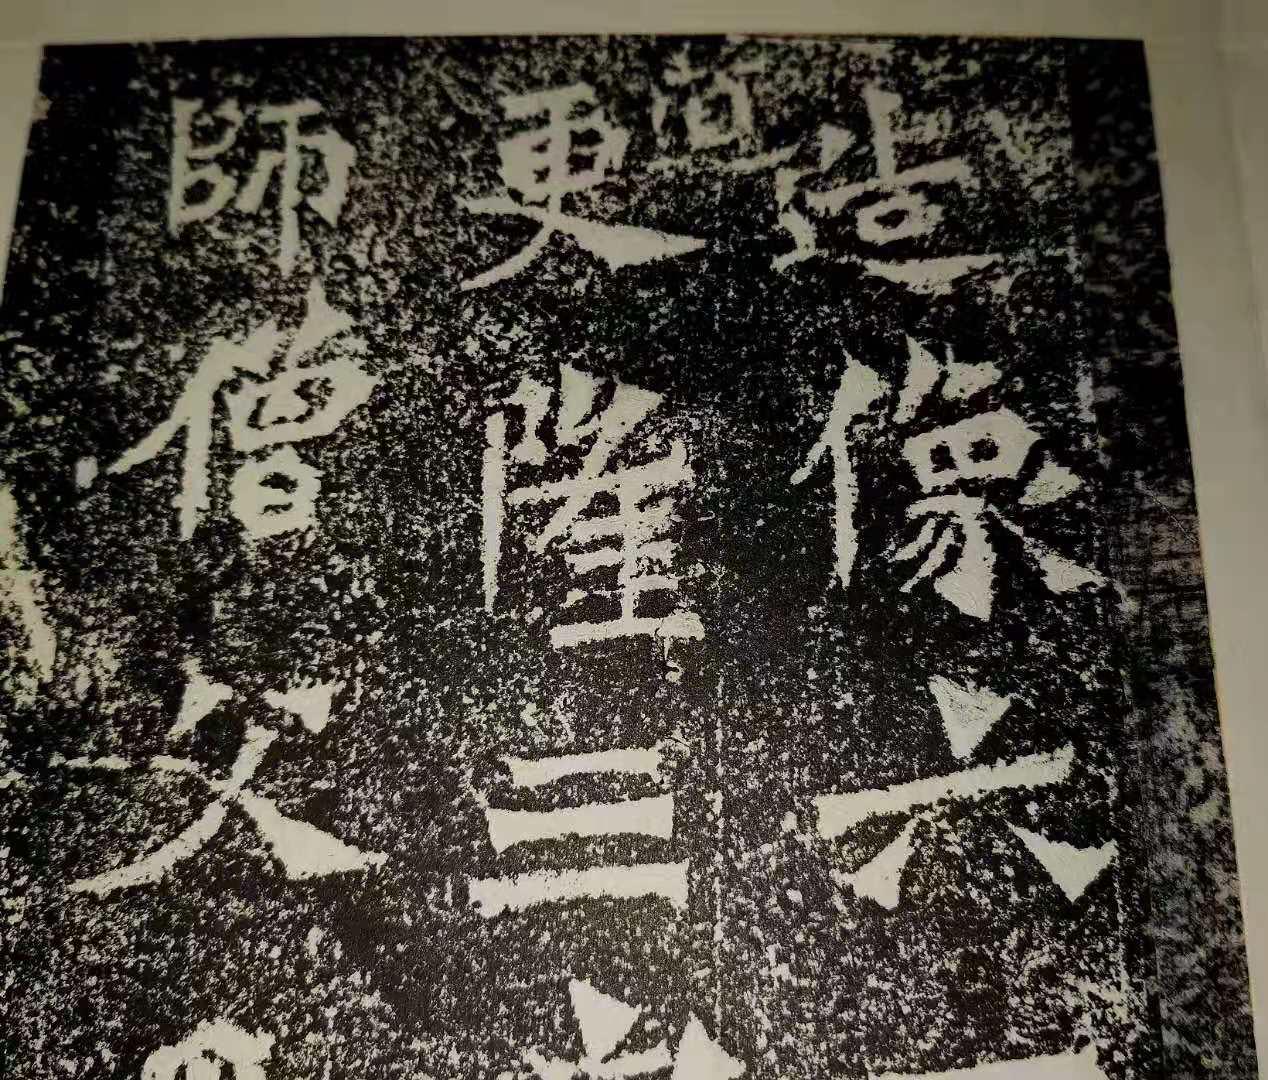 造像六
更隆三
師僧父